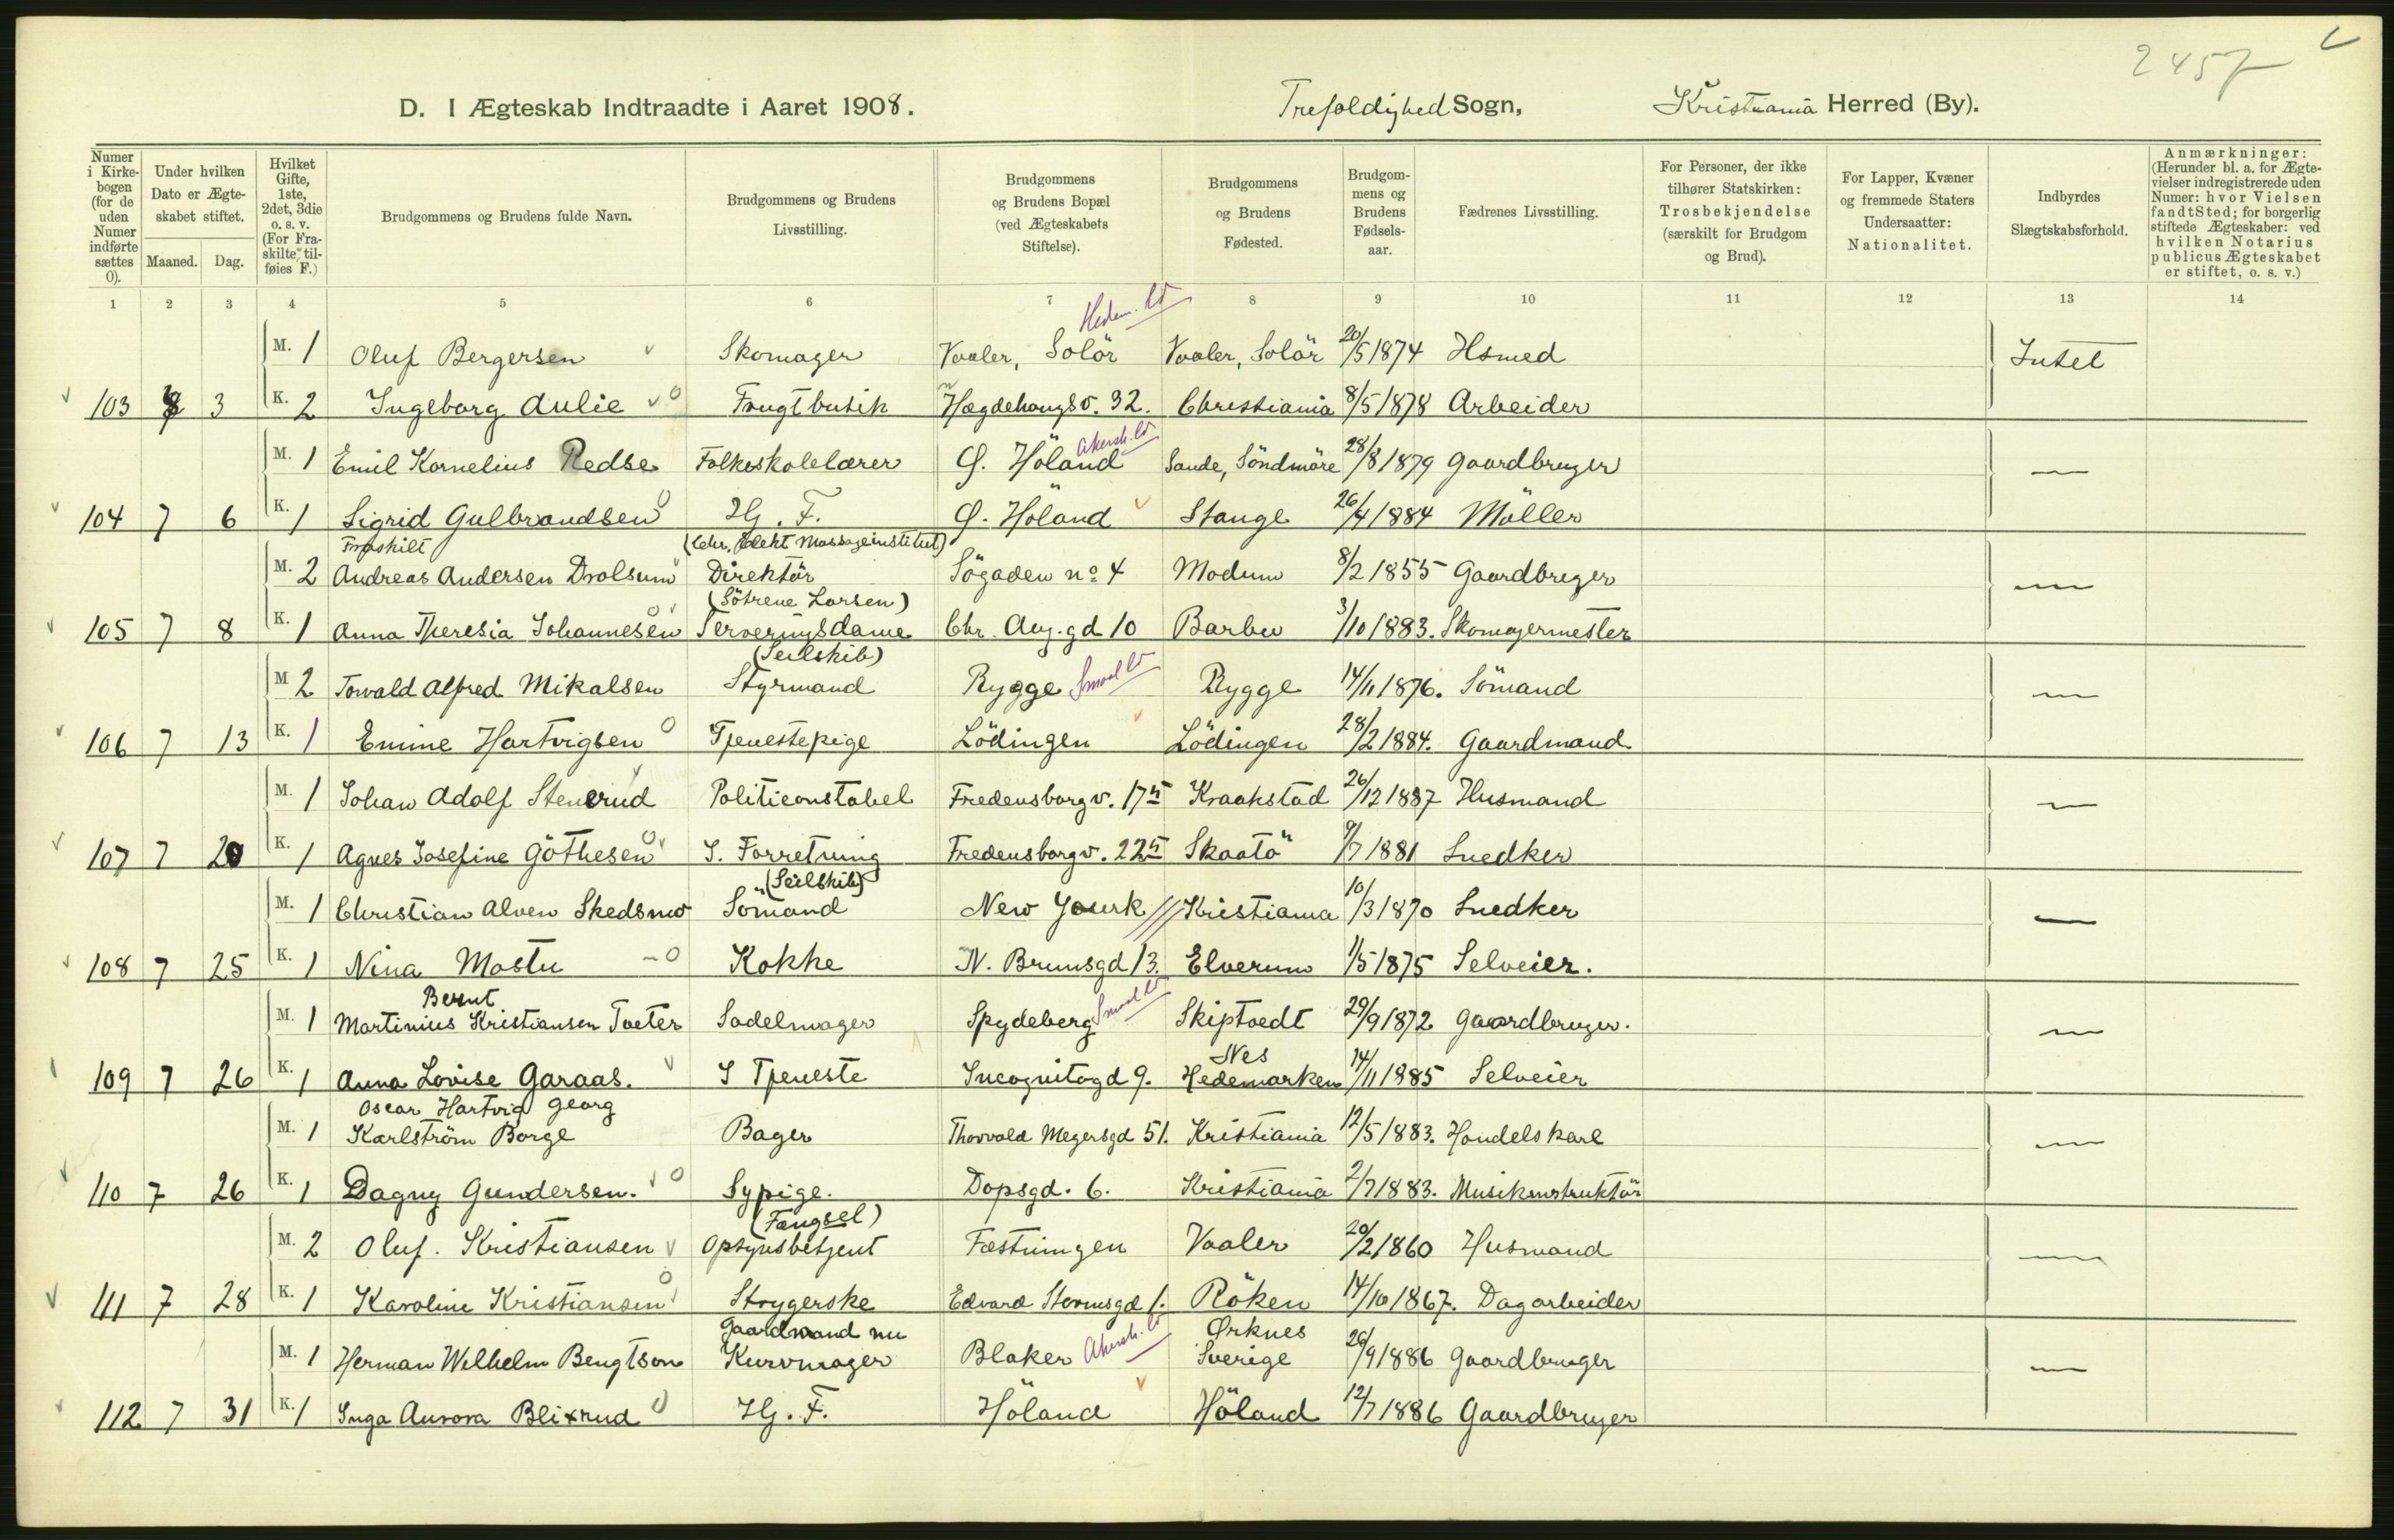 2457
D. I Ægteskab Indtraadte i Aaret 1908. Trefoldighed Sogn, Kristiania Herred (By).
Numer i Kirkebogen (for de uden Numer indførte sættes 0). | Under hvilken Dato er Ægteskabet stiftet. Maaned. Dag. | Hvilket Gifte, 1ste, 2det, 3die o. s. v. (For Fraskilte tilføies F.) | Brudgommens og Brudens fulde Navn. | Brudgommens og Brudens Livsstilling. | Brudgommens og Brudens Bopæl (ved Ægteskabets Stiftelse). | Brudgommens og Brudens Fødested. | Brudgommens og Brudens Fødselsaar. | Fædrenes Livsstilling. | For Personer, der ikke tilhører Statskirken: Trosbekjendelse (særskilt for Brudgom og Brud). | For Lapper, Kvæner og fremmede Staters Undersaatter: Nationalitet. | Indbyrdes Slægtskabsforhold. | Anmærkninger: (Herunder bl. a. for Ægtevielser indregistrerede uden Numer: hvor Vielsen fandt Sted; for borgerlig stiftede Ægteskaber: ved hvilken Notarius publicus Ægteskabet er stiftet, o. s. v.)
1 2 3 4 5 6 7 8 9 10 11 12 13 14
Hedem.
M. 1 Oluf Bergersen Skomager Vaaler, Solör Vaaler, Solör 20/5 1874 Hsmed Intet
103 8 3 K. 2 Ingeborg Aulie Frugtbutik Hægdehaugsv. 32. Christiania 8/5 1878 Arbeider
Akersh.
M. 1 Emil Kornelius Redse Folkeskolelærer Ø. Höland Sande, Söndmöre 28/8 1879 Gaardbruger —
104 7 6 K. 1 Sigrid Gulbrandsen Hj. F. Ø. Höland Stange 26/4 1884 Möller
Fraskilt (Chr. Elekt Massageinstitut)
M. 2 Andreas Andersen Drolsum Direktör Sögaden no 4 Modum 8/2 1855 Gaardbruger —
(Söstrene Larsen)
105 7 8 K. 1 Anna Theresia Johannesen Serveringsdame Chr. Aug. gd 10 Barbu 3/10 1883. Skomagermester
(Seilskib)
M 2 Torvald Alfred Mikalsen Styrmand Rygge Smaal Rygge 14/11 1876. Sömand —
106 7 13 K. 1 Emine Hartvigsen Tjenestepige Lödingen Lödingen 28/2 1884. Gaardmand.
M. 1 Johan Adolf Stenerud Politiconstabel Fredensborgv. 17 Kraakstad 26/12 1887 Husmand —
107 7 20 K. 1 Agnes Josefine Göthesen I. Forretning Fredensborgv. 22 Skaatö 9/7 1881 Snedker
(Seilskib)
M. 1 Christian Alven Skedsmo Sömand New Yourk Kristiania 10/3 1870 Snedker —
108 7 25 K. 1 Nina Mostu Kokke N. Brunsgd 13. Elverum 1/5 1875 Selveier.
Bernt
M. 1 Martinius Kristiansen Tveter Sadelmager Spydeberg Smaal Skiptvedt 29/9 1872 Gaardbruger. —
Nes
109 7 26 K. 1 Anna Lovise Garaas. I Tjeneste Incognitogd 9. Hedemarken 14/11 1885 Selveier
Oscar Hartvig Georg
M. 1 Karlström Borge Bager Thorvald Megersgd 51. Kristiania 12/5 1883. Handelskarl —
110 7 26 K. 1 Dagny Gundersen. Sypige. Dopsgd. 6. Kristiania 2/7 1883. Musikinstruktör
(Fængsel)
M. 2 Oluf. Kristiansen Opsynsbetjent Fæstningen Vaaler 20/2 1860 Husmand —
111 7 28 K. 1 Karoline Kristiansen Strygerske Edvard Stormsgd 1. Röken 14/10 1867. Dagarbeider
Gaardmand nu Ørknes
M. 1 Herman Wilhelm Bengtson Kurvmager Blaker Akersh. Sverige 26/9 1886 Gaardbruger —
112 7 31 K. 1 Inga Aurora Blixrud Hj. F. Höland Höland 12/7 1886 Gaardbruger